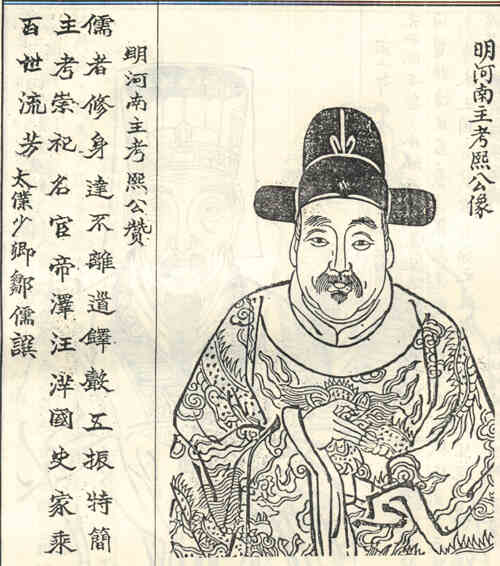 明河南主考熙公像
明河南主考熙公贊
儒者修身達不離道鐸敷五振特簡
主考崇祀名宦帝澤汪濊國史家乘
百世流芳 太僕少卿鄒儒譔